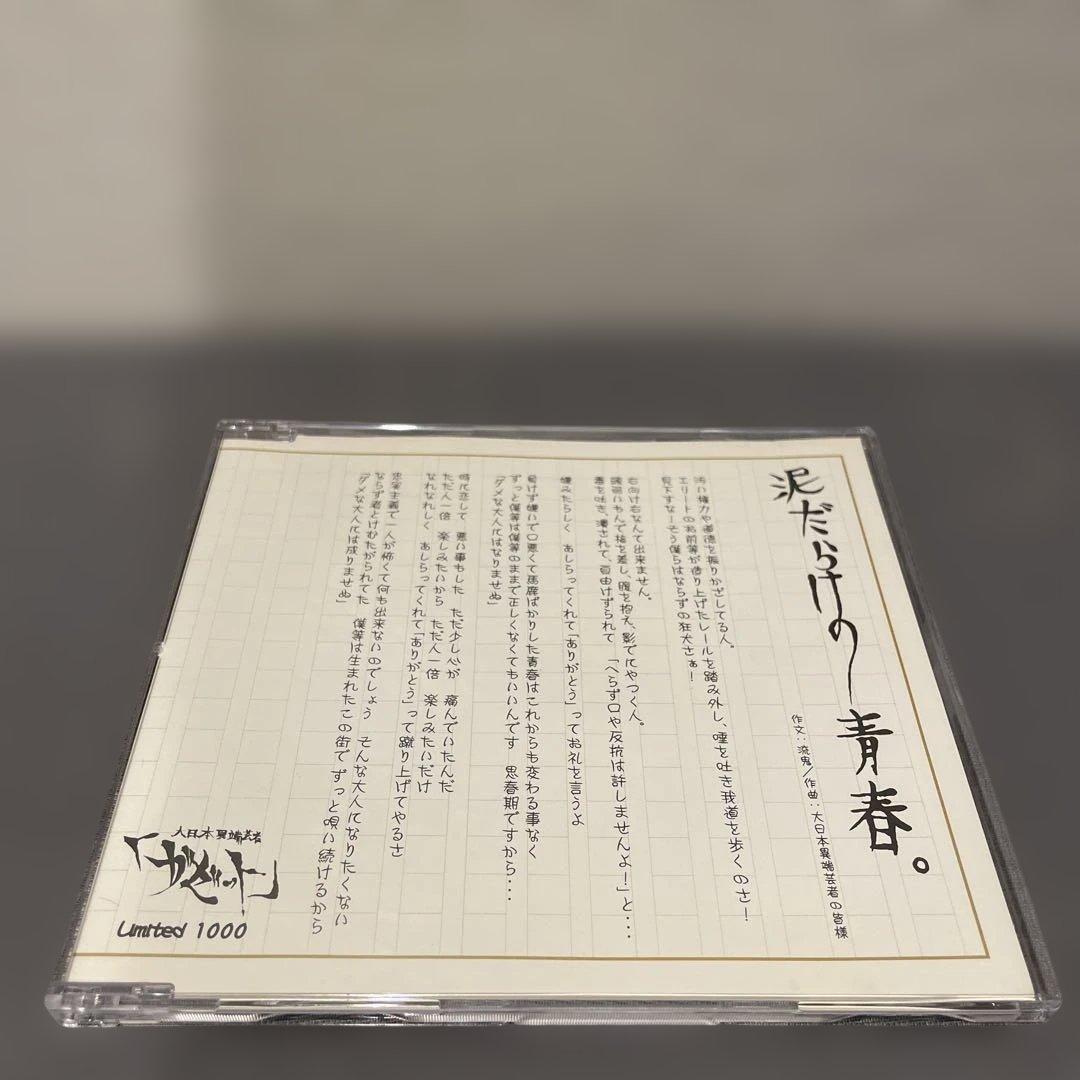 泥だらけの青春。
作文:流鬼/作曲:大日本異端芸者の皆様
汚い権力や道徳を振りかざしてる人。
エリートのお前等が造り上げたレールを踏み外し、唾を吐き我道を歩くのさ!
見下すなーそう僕らはならずの狂犬さぁ!
右向け右なんて出来ません。
頭固いもんで指を差し、腹を抱え、影でにやつく人。
毒を吐き、潰されて、自由けずられて 「へらず口や反抗は許しませんよ!」と・・・
嫌みたらしく あしらってくれて「ありがとう」ってお礼を言うよ
負けず嫌いで口悪くて馬鹿ばかりした青春はこれからも変わる事なく
ずっと僕等は僕等のままで正しくなくてもいいんです 思春期ですから・・・
「ダメな大人にはなりませぬ」
時に恋して 悪い事もした ただ少し心が 痛んでいたんだ
ただ人一倍 楽しみたいから ただ人一倍 楽しみたいだけ
なれなれしく あしらってくれて「ありがとう」って蹴り上げてやるさ
忠実主義で一人が怖くて何も出来ないのでしょう そんな大人になりたくない
ならず者とけむたがられてた 僕等は生まれたこの街で ずっと唄い続けるから
「ダメな大人には成りませぬ」
大日本異端芸者
「ガゼット」
Limited 1000